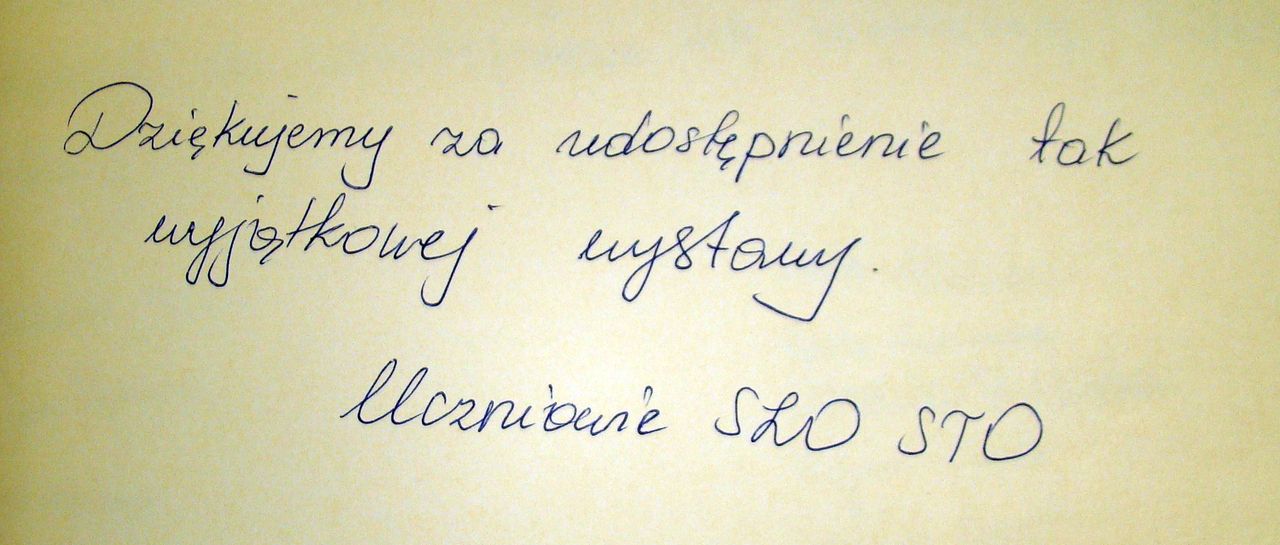 Dziękujemy za udostępnienie tak
wyjątkowej wystawy.
Uczniowie SLO STO